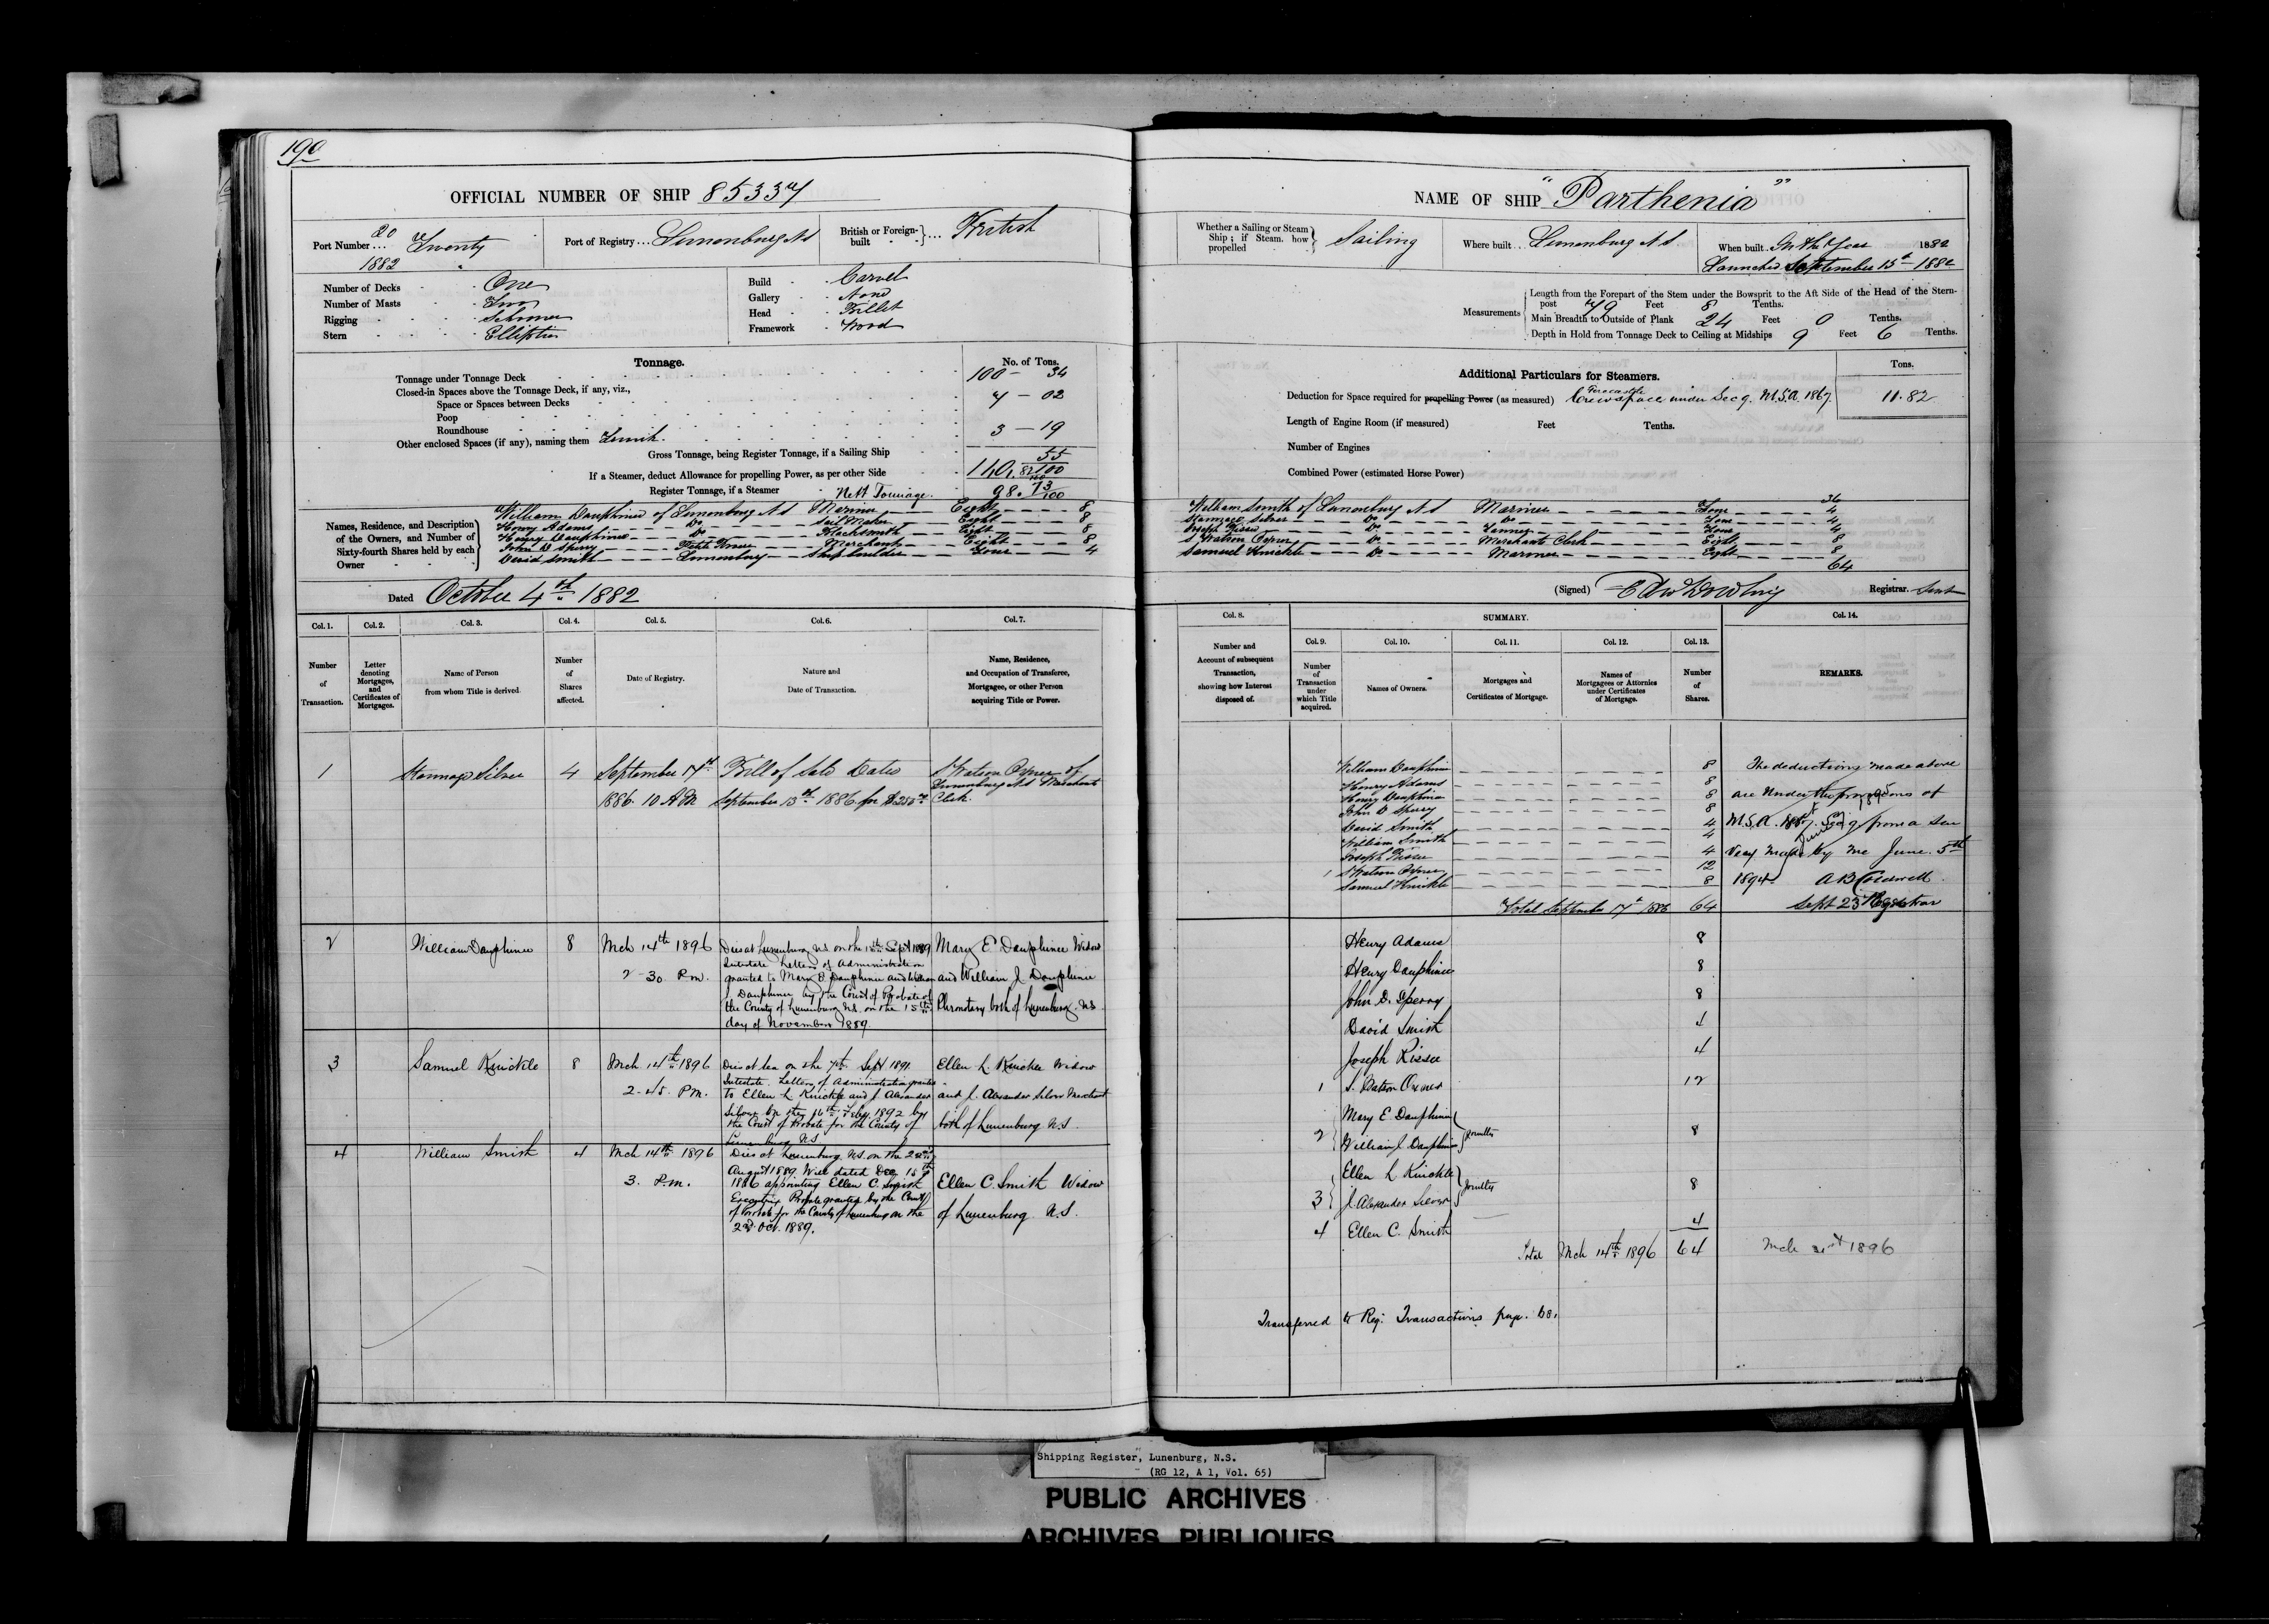 190
OFFICIAL NUMBER OF SHIP 85337
Port Number ... 20 Twenty
1882
Port of Registry ... Lunenburg N S
British or Foreign-built } ... British
Number of Decks One
Number of Masts Two
Rigging Schooner
Stern Elliptic
Build Carvel
Gallery None
Head Fillet
Framework Wood
Tonnage.
No. of Tons.
Tonnage under Tonnage Deck 100 - 34
Closed-in Spaces above the Tonnage Deck, if any, viz.,
Space or Spaces between Decks 7 - 02
Poop
Roundhouse
Other enclosed Spaces (if any), naming them 3 - 19
Gross Tonnage, being Register Tonnage, if a Sailing Ship 110. 55/100
If a Steamer, deduct Allowance for propelling Power, as per other Side 82/100
Register Tonnage, if a Steamer Nett Tonnage. 98. 73/100
Names, Residence, and Description of the Owners, and Number of Sixty-fourth Shares held by each Owner
William Dauphinee of Lunenburg N S Mariner Eight 8
Henry Adams Do Sail Maker Eight 8
Henry Dauphinee Do Blacksmith Eight 8
John D Sperry Merchant Eight 8
David Smith Lunenburg Shipbuilder Four 4
Dated October 4th 1882
Col. 1. Col. 2. Col. 3. Col. 4. Col. 5. Col. 6. Col. 7.
Number of Transaction.
Letter denoting Mortgages, and Certificates of Mortgages.
Name of Person from whom Title is derived.
Number of Shares affected.
Date of Registry.
Nature and Date of Transaction.
Name, Residence, and Occupation of Transferee, Mortgagee, or other Person acquiring Title or Power.
1 Silver 4 September 17th Bill of Sale Dated S Watson Oxner of
Lunenburg N S Merchants
1886. 10 AM September 13th 1886 for Clerk
2 William Dauphinee 8 Mch 14th 1896 Died at Lunenburg NS on the Sept 1889 Mary E. Dauphinee Widow
Intestate Letters of Administration
2-30 P.m. granted to Mary E Dauphinee and William and William J Dauphinee
J Dauphinee by the Court of Probate of
the County of Lunenburg N.S. on the 15th both of Lunenburg NS
day of November 1889.
3 Samuel Knickle 8 Mch 14th 1896 Died at sea on the 7th Sept 1891 Ellen L Knickle Widow
Intestate. Letters of Administration
2-45. P.m. To Ellen L Knickle and J Alexander and J. Alexander Silver Merchant
Silver on the 16th Feby. 1892 by
the Court of Probate for the County of both of Lunenburg N.S.
Lunenburg N.S
4 William Smith 4 Mch 14th 1896 Died at Lunenburg N.S. on the 22nd
August 1889 Will dated Dec 18th
3. P.m. 1886 appointing Ellen C. Smith Ellen C. Smith Widow
Executrix Probate granted by the Court
of Probate for the County of Lunenburg on the of Lunenburg N.S.
Oct. 1889.
NAME OF SHIP "Parthenia"
Whether a Sailing or Steam Ship; if Steam, how propelled } Sailing
Where built ... Lunenburg N S
When built In the Year 1882
Launched September 15th 1882
Measurements
Length from the Forepart of the Stem under the Bowsprit to the Aft Side of the Head of the Stern-
post 79 Feet 8 Tenths.
Main Breadth to Outside of Plank 24 Feet 0 Tenths.
Depth in Hold from Tonnage Deck to Ceiling at Midships 9 Feet 6 Tenths.
Additional Particulars for Steamers.
Tons.
Deduction for Space required for propelling Power (as measured) Forecastle Crewspace under Sec 9. M.S.A. 1867. 11.82
Length of Engine Room (if measured) Feet Tenths.
Number of Engines
Combined Power (estimated Horse Power)
36
William Smith of Lunenburg N S Mariner Four 4
Silver Do Do Four 4
Joseph Do Four 4
S Watson Oxner Do Merchants Clerk Eight 8
Samuel Knickle Do Mariner Eight 8
64
(Signed) Edw Dowling Registrar.
Col. 8. SUMMARY. Col. 14.
Col. 9. Col. 10. Col. 11. Col. 12. Col. 13.
Number and Account of subsequent Transaction, showing how Interest disposed of.
Number of Transaction under which Title acquired.
Names of Owners.
Mortgages and Certificates of Mortgage.
Names of Mortgagees or Attornies under Certificates of Mortgage.
Number of Shares.
REMARKS.
William Dauphinee 8
Henry Adams 8
Henry Dauphinee 8
John D Sperry 8
David Smith 4
William Smith 4
Joseph 4
1 S Watson Oxner 12
Samuel Knickle 8
Total September 17th 1886 64
The deductions made above
are under the provisions of
M.S.A. from a
made by me June. 5th
1894. A B Caldwell
Registrar
Henry Adams 8
Henry Dauphinee 8
John D. Sperry 8
David Smith 4
Joseph 4
1 S. Watson Oxner 12
2 { Mary E. Dauphinee
William J. Dauphinee } Jointly 8
3 { Ellen L Knickle
J. Alexander Silver } Jointly 8
4 Ellen C. Smith 4
Total Mch 14th 1896 64
Mch 1896
Transferred to Reg: Transactions page. 68.
Shipping Register, Lunenburg, N.S.
(RG 12, A 1, Vol. 65)
PUBLIC ARCHIVES
ARCHIVES PUBLIQUES